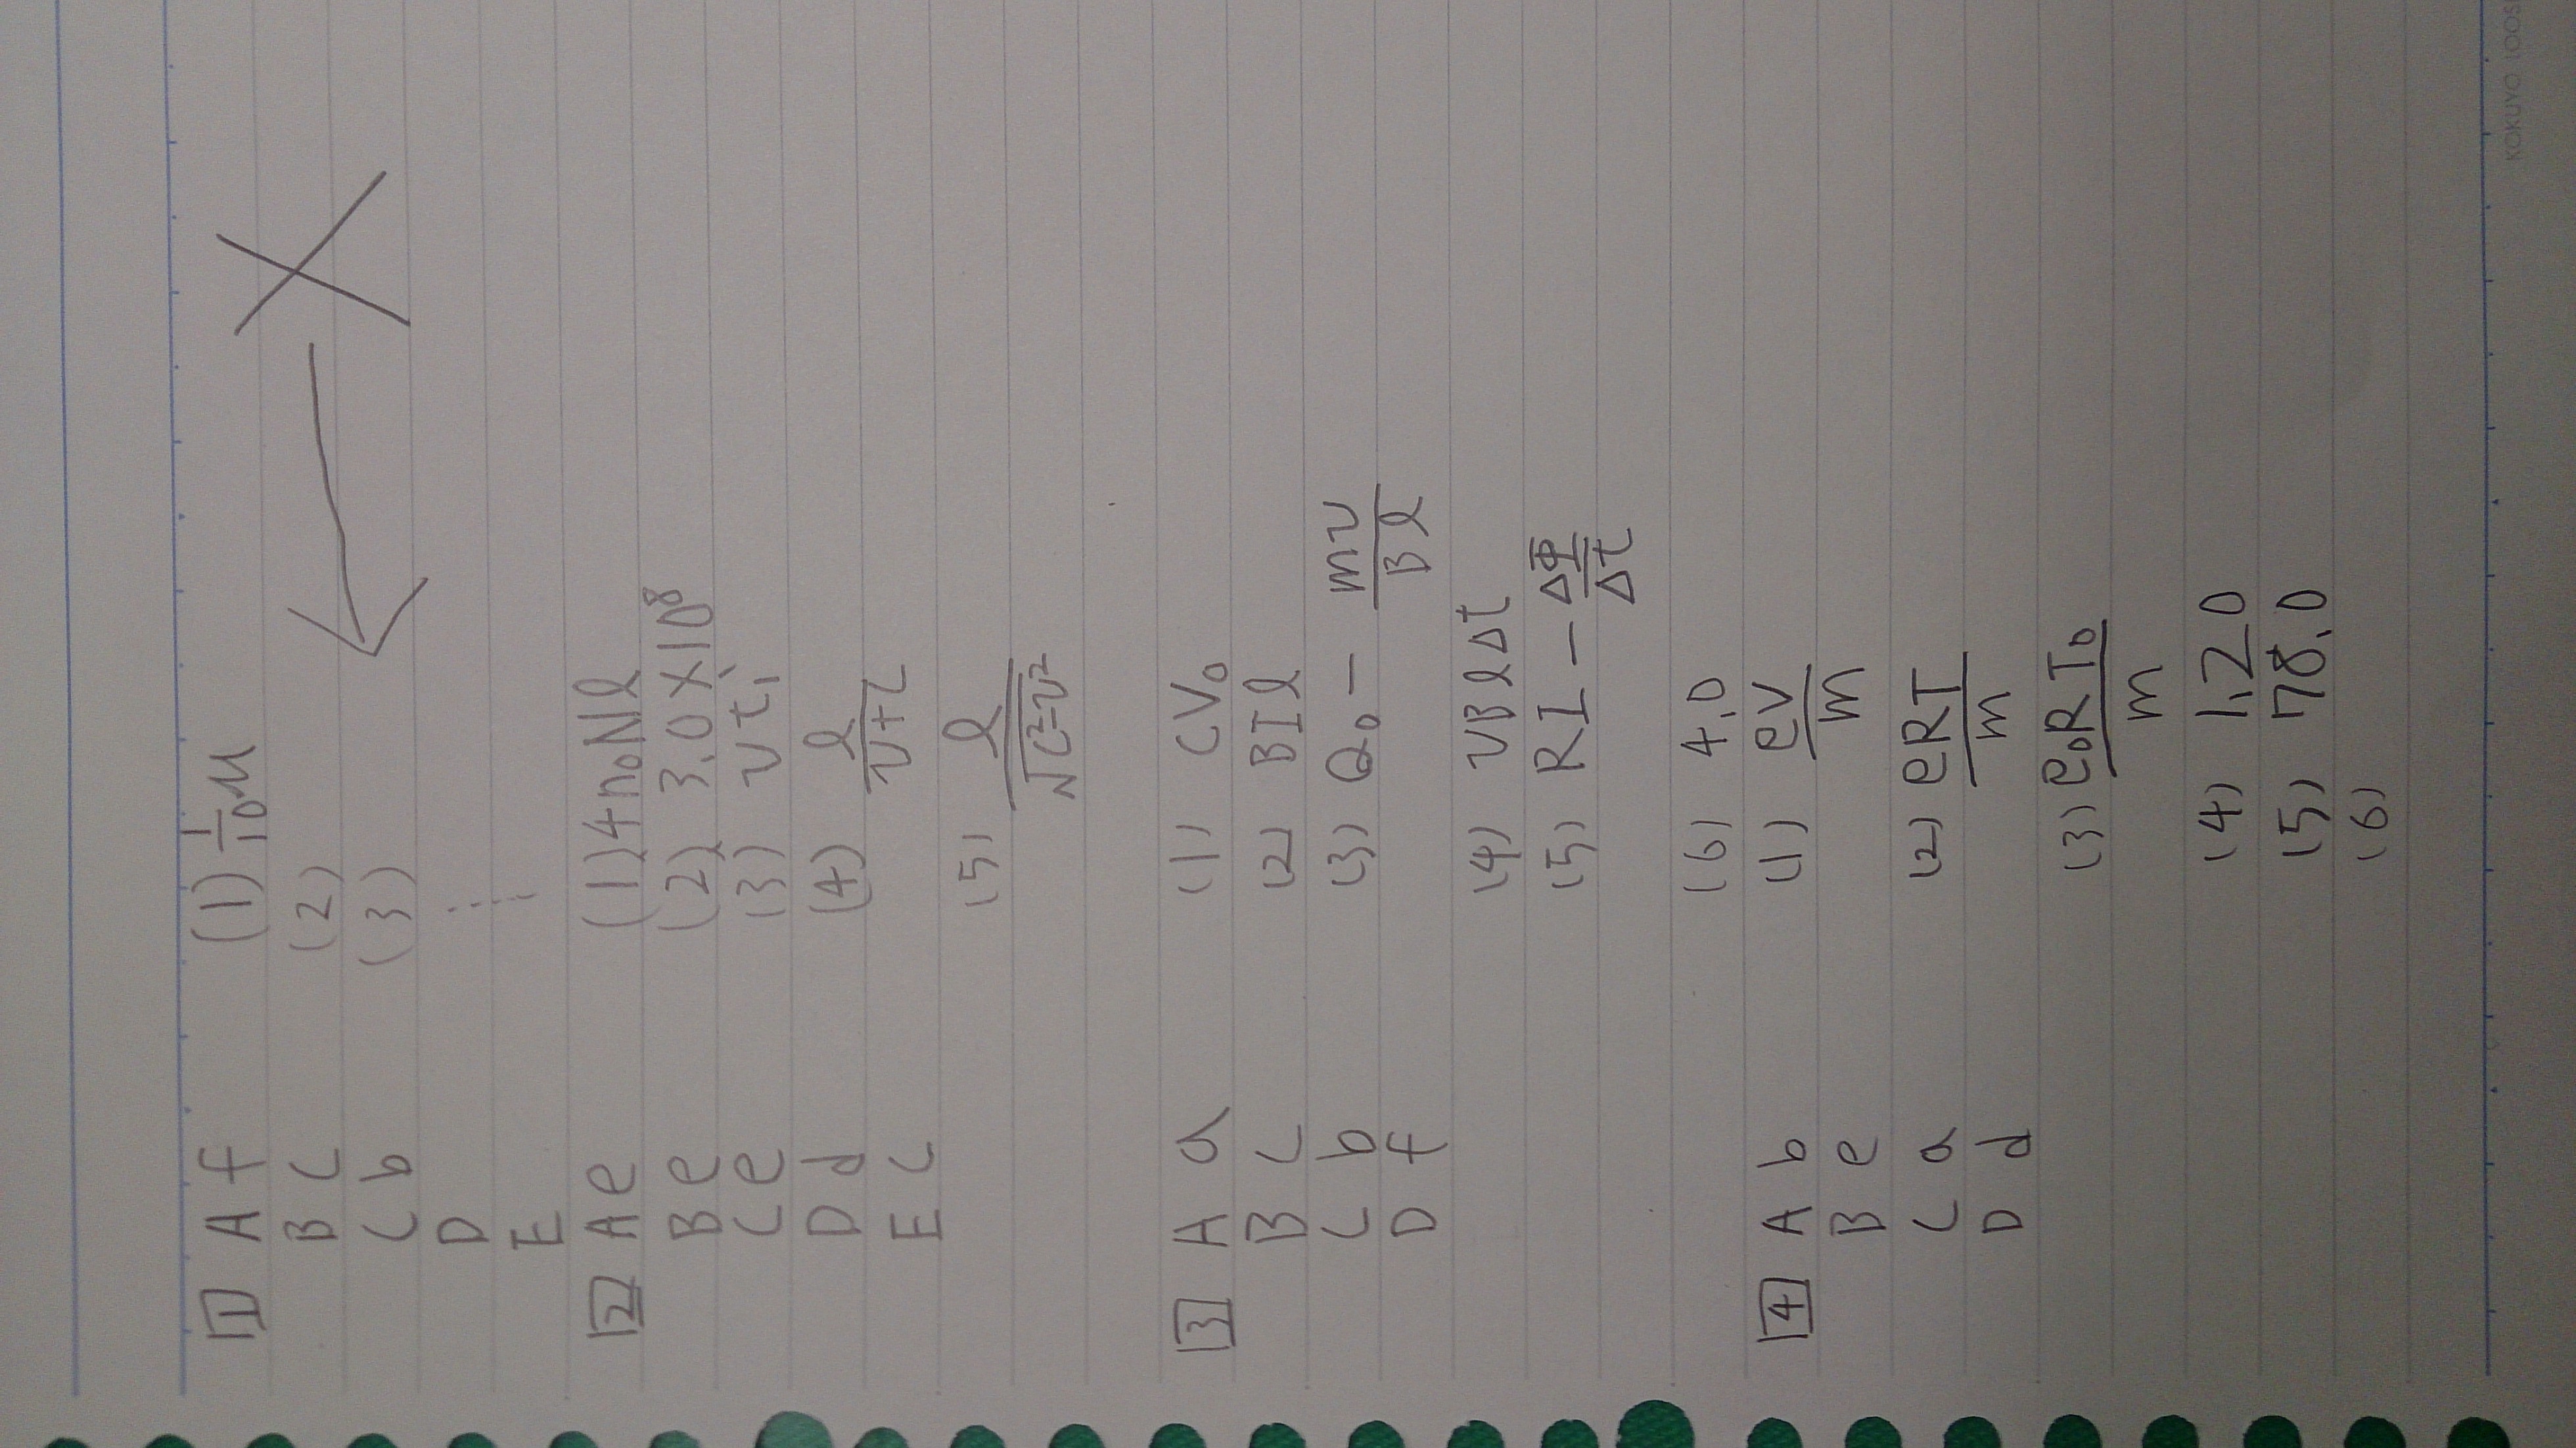 1 A f (1) 1/10 M
B c (2)
C b (3)
D
E
2 A e (1) 4n₀Nl
B e (2) 3.0×10⁸
C e (3) vt₁
D d (4) l/(v+c)
E c (5) l/√(c²-v²)
3 A a (1) CV₀
B c (2) BIl
C b (3) Q₀ - mv/Bl
D f (4) vBlΔt
(5) RI - ΔΦ/Δt
(6) 4.0
4 A b (1) PV/m
B e (2) PRT/m
C a (3) P₀RT₀/m
D d (4) 1.20
(5) 78.0
(6)
KOKUYO LOOSE